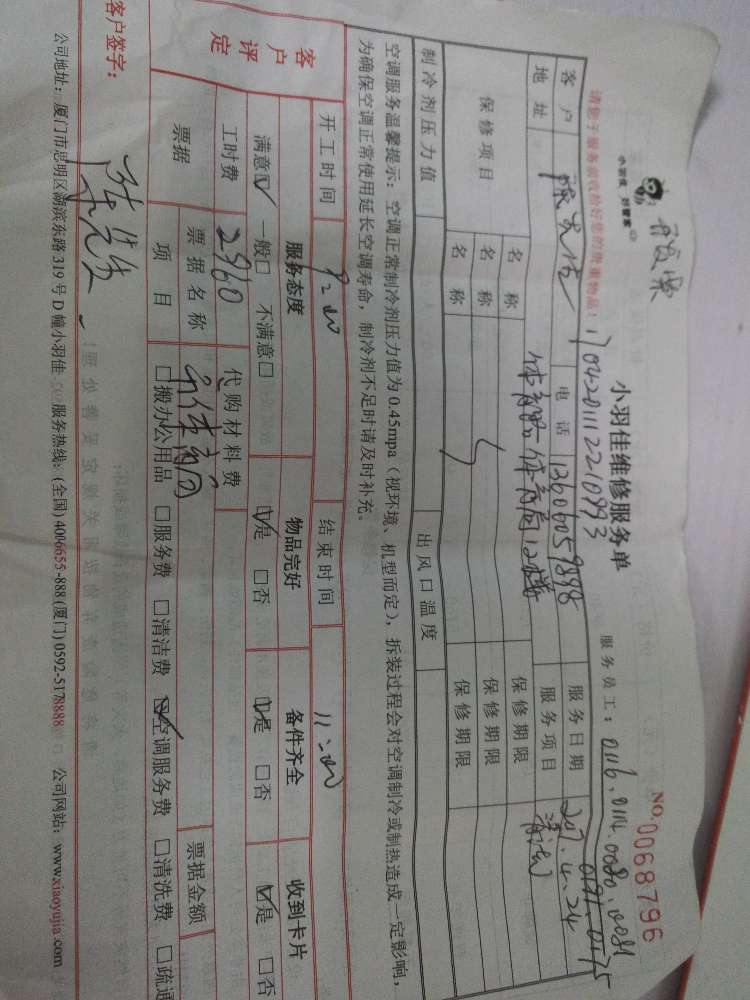 小羽佳 好管家
请您于服务前收拾好您的贵重物品!
小羽佳维修服务单
NO.0068796
服务员工: 0116.0114.0080.0081
客户 电话 13606059898 服务日期
地址 服务项目 清洗
保修项目 名称 保修期限
名称 保修期限
名称 保修期限
制冷剂压力值 出风口温度
空调服务温馨提示: 空调正常制冷剂压力值为 0.45mpa (视环境、机型而定), 拆装过程会对空调制冷或制热造成一定影响,
为确保空调正常使用延长空调寿命, 制冷剂不足时请及时补充。
开工时间 9:00 结束时间 11:00
客户评定 服务态度 物品完好 备件齐全 收到卡片
满意☑ 一般□ 不满意□ ☑是 □否 ☑是 □否 ☑是 □否
工时费 2960 代购材料费
票据 票据名称 票据金额
项目 □搬办公用品 □服务费 □清洁费 ☑空调服务费 □清洗费 □疏通
客户签字:
公司地址: 厦门市思明区湖滨东路319号D幢小羽佳 服务热线: (全国) 4006655-888 (厦门) 0592-5178888 公司网站: www.xiaoyujia.com